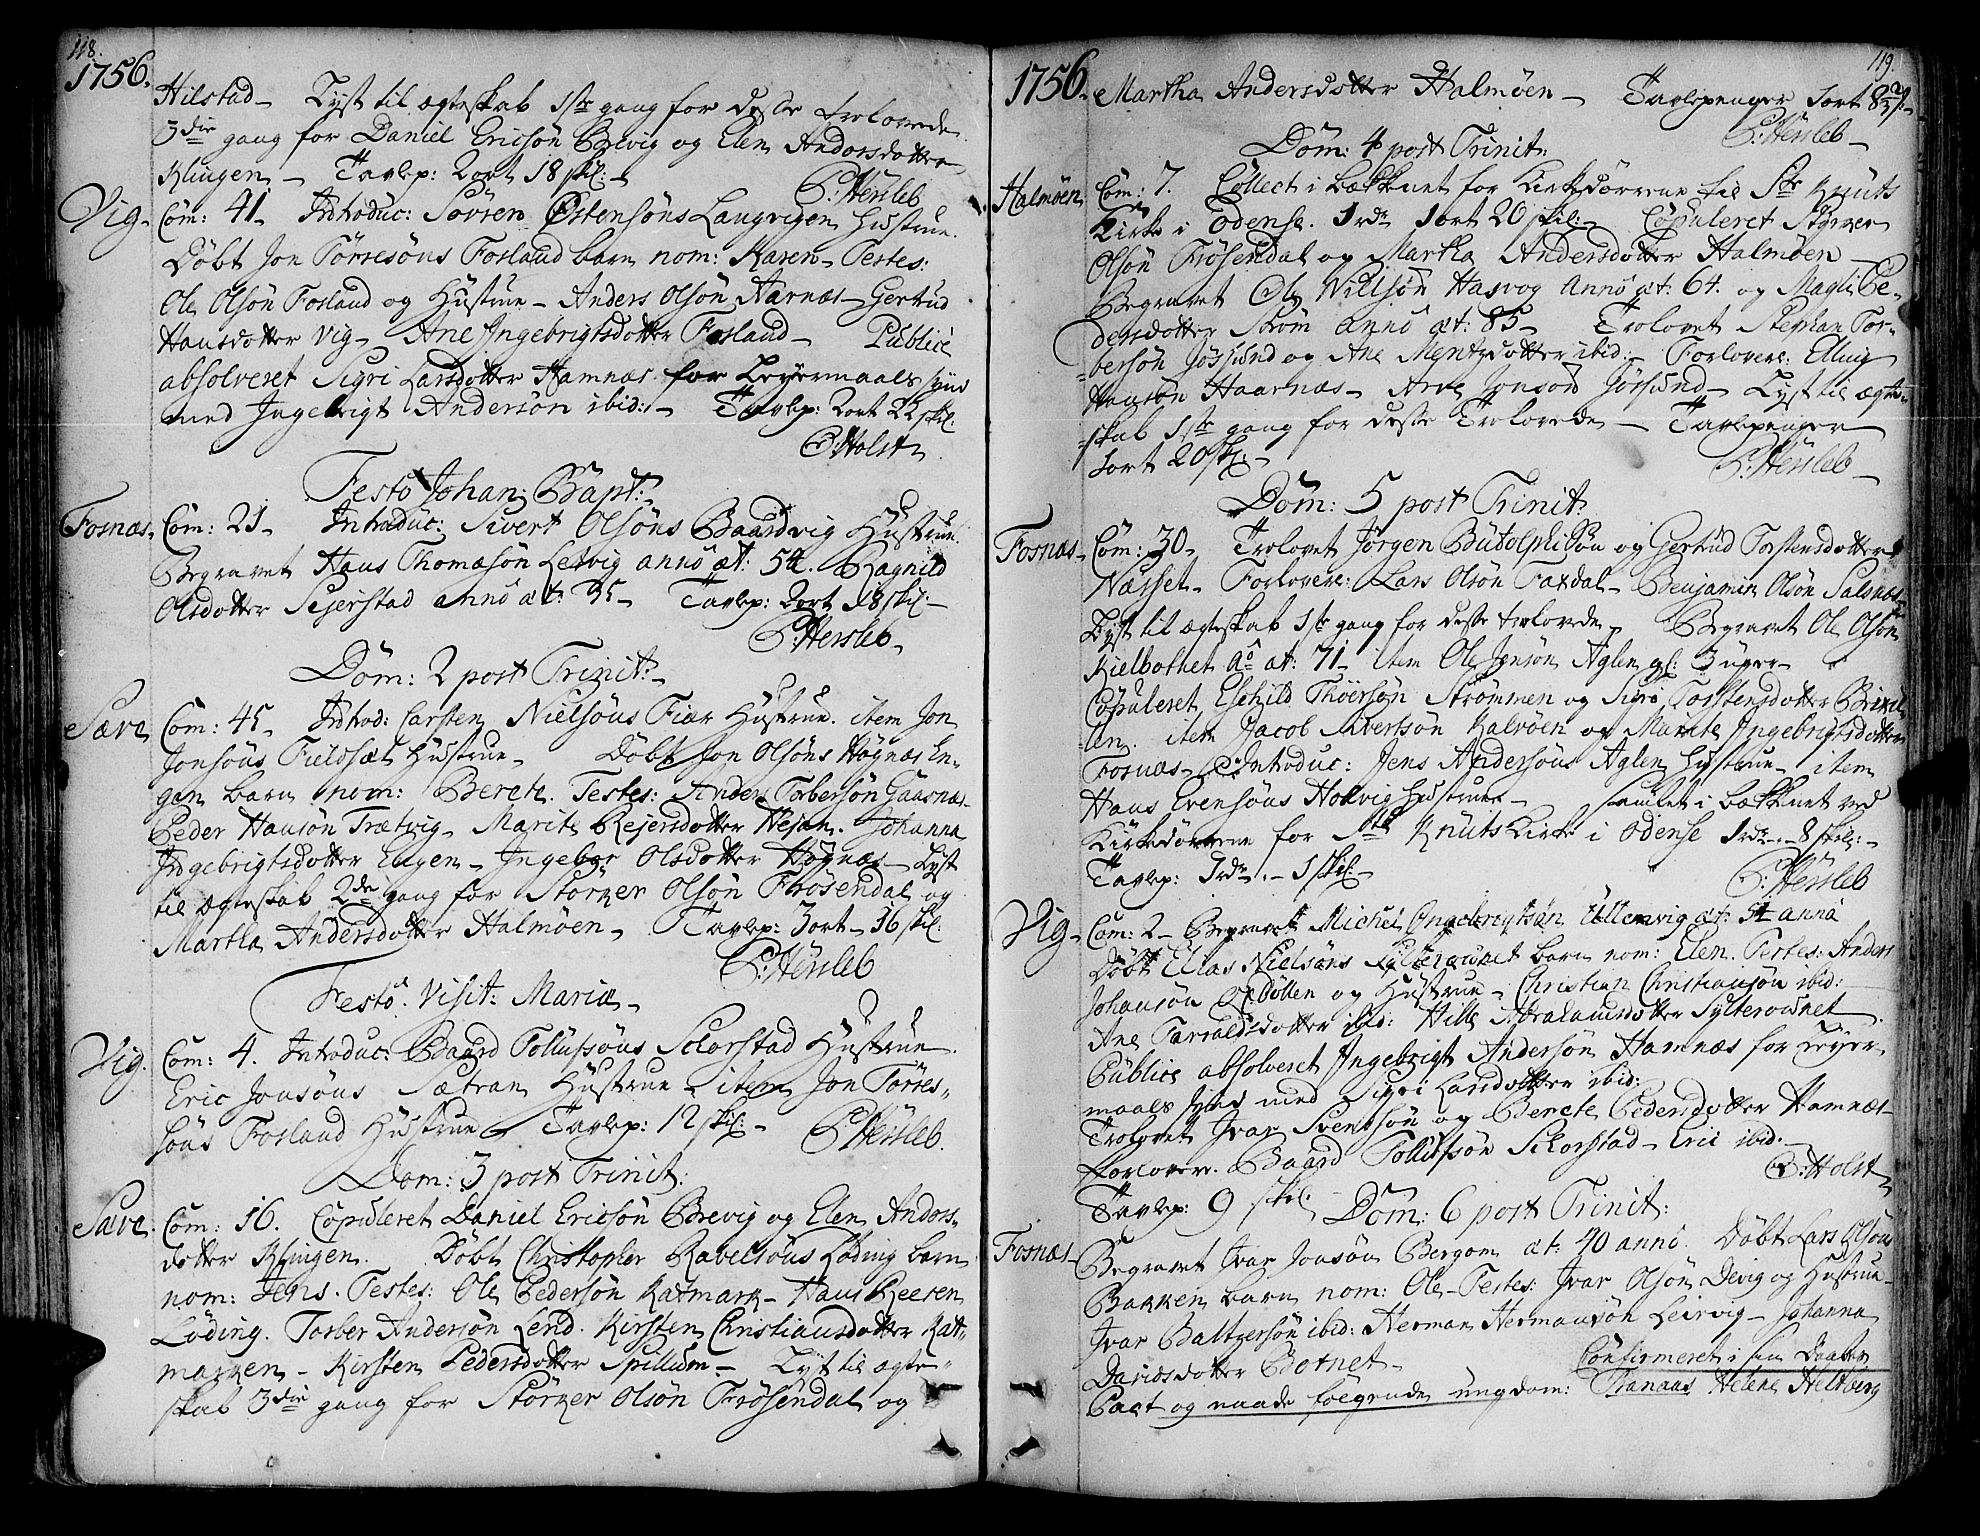 118.
1756.
Hilstad – Lyst til ægteskab 1ste gang for desse trolovede
3die gang for Daniel Ericsön Brevig og Elen Andorsdotter
Klingen – Tavlep: 2ort 18 skil:
P: Hersleb
Vig. Com: 41 – Introduc: Sövren Östensöns Langvigen Hustrue.
Döbt Jon Törresöns Fosland barn nom: Karen – Testes:
Ole Olsön Fosland og Hustrue – Anders Olsön Aarnæs – Gertrud
Hansdotter Vig – Ane Ingebrigtsdotter Fosland – Publicè
absolveret Sigri Larsdotter Hamnæs for Leyermaals synd
med Ingebrigt Andersön ibid: – Tavlep: 2ort 22 skil.
C: Holst
Festo Johan: Bapt:
Fosnæs. Com: 21 – Introduc: Sivert Olsöns Baardvig Hustrue.
Begravet Hans Thomæsön Leivig anno æt: 54. Ragnild
Olsdotter Sejerstad anno æt: 35 – Tavlep: 2ort 18 skil:
P: Hersleb
Dom: 2 post Trinit:
Sære Com: 45 – Introd: Carsten Nielsöns Fiær Hustrue. item Jon
Jonsöns Fieldsæt Hustrue – Döbt Jon Olsöns Högnæs En-
gen barn nom: Berete. Testes: Anders Torbersön Gaasnæs
Peder Hansön Trætvig – Marite Rejersdotter Vejan. Johanna
Ingebrigtsdotter Engen – Ingebor Olsdotter Högnæs – Lyst
til ægteskab 2den gang for Storker Olsön Frösendal og
Martha Andersdotter Halmöen – Tavlep: 3ort – 16 skil:
P: Hersleb
Festo: Visit: Mariæ
Vig. Com: 4. Introduc: Baard Tollufsöns Schorstad Hustrue.
Eric Jonsöns Sætran Hustrue – item Jon Törres-
söns Fosland Hustrue – Tavlep: 12 skil: – P: Hersleb.
Dom: 3 post Trinit:
Sære Com: 16. Copuleret Daniel Ericsön Brevig og Elen Andors-
dotter Klingen. Döbt Christopher Ravelsöns Löding barn
nom: Jens. Testes: Ole Pedersön Katmark – Hans
Löding. Torber Andersön Lend. Kirsten Christiansdotter Kat-
marken – Kirsten Pedersdotter Spillum – Lyst til ægte-
skab 3die gang for Störker Olsön Frösendal og
119.
1756. Martha Andersdotter Halmöen – Tavlepenger 1ort
P: Hersleb
Dom: 4 post Trinit:
Halmöen Com: 7. Collect i bækkenet for Kirkedörrene til Ste Knuts
Kirke i Odense. 1rdr 1ort 20 skil: – Copuleret Störker
Olsön Frösendal og Martha Andersdotter Halmöen –
Begravet Ole Nielsön Hasvog anno æt: 64. og Magli Pe-
dersdotter Ström anno æt: 85 – Trolovet Stephan Tor-
bersön Jössund og Ane Mentzdotter ibid: – Forlovere: Elling
Hansön Haarnæs – Arne Jonsön Jössund – Lyst til ægte-
skab 1ste gang for desse Trolovede – Tavlepenger
1ort 20 sk: –
P: Hersleb
Dom: 5 post Trinit:
Fosnæs – Com: 30 – Trolovet Jörgen Budolphisön og Gertrud Torstensdotter
Næsset – Forlovere: Lars Olsön Faxdal – Benjamin Olsön Salsnæs
Lyst til ægteskab 1ste gang for desse trolovede – Begravet Ole Olsön
Kielbotnet Ao æt: 71 – item Ole Jensön Aglen gl: 3 uger –
Copuleret Eschild Thöersön Strömmen og Sigri Torstensdotter
len. item Jacob Ivertsön Kalvöen og Marite Ingebrigtsdotter
Fosnæs – Introduc: Jens Andersöns Aglen Hustrue – item
Hans Evensöns Holvig Hustrue – samlet i bækkenet ved
Kirkedörrene for Ste Knuts Kirke i Odense 1rdr – 8 skil: –
Tavlep: 1rdr. – 1 skil: –
P: Hersleb
Vig – Com: 2 – Begravet Michel Ingebrigtsön Ullenvig æt: 54 anno
Döbt Elias Nielsöns Sylterounet barn nom: Elen. Testes: Anders
Johansön Oxdöllen og Hustrue – Christian Christiansön ibid: –
Ane Tarraldsdotter ibid: Hille Abrahamsdotter Sylterounet
Publice absolveret Ingebrigt Andersön Hamnæs for Leyer-
maals synd med Sigri Larsdotter ibid:
Trolovet Ivar Svensön og Berete Pedersdotter Hamnæs
Forlovere. Baard Tollufsön Schorstad – Eric ibid. –
C: Holst
Tavlep: 9 skil:
Dom: 6 post Trinit:
Fosnæs – Begravet Ivar Jonsön Bergom æt: 40 anno. Döbt Lars Olsöns
Bakken barn nom: Ole – Testes: Ivar Olsön Devig og Hustrue –
Ivar Baltzersön ibid: Herman Hermansön Leirvig – Johanna
Davidsdotter Botnet – Confirmeret i sin Daabes
Pact og naade fölgende ungdom: Helene Heltberg